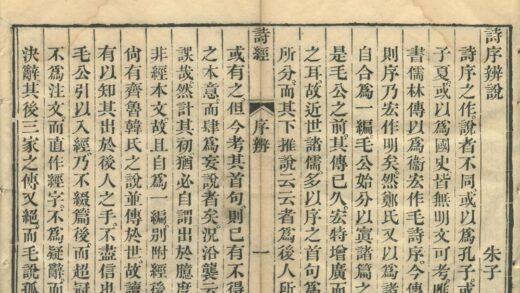 詩序辨說 朱子
詩序之作說者不同或以爲孔子或
子夏或以爲國史皆無明文可考唯
書儒林傳以爲衞宏作毛詩序今傳
則序乃宏作明矣然鄭氏又以爲諸
自合爲一編毛公始分以寘諸篇之
是毛公之前其傳已久宏特增廣而
之耳故近世諸儒多以序之首句爲
所分而其下推說云云者爲後人所
詩經 序辨 一
或有之但今考其首句則已有不得
之本意而肆爲妄說者矣況沿襲云
誤哉然計其初猶必自謂出於臆度
非經本文故且自爲一編別附經後
尚有齊魯韓氏之說並傳於世故讀
有以知其出於後人之手不盡信也
毛公引以入經乃不綴篇後而超冠
不爲注文而直作經字不爲疑辭而
決辭其後三家之傳又絕而毛說孤